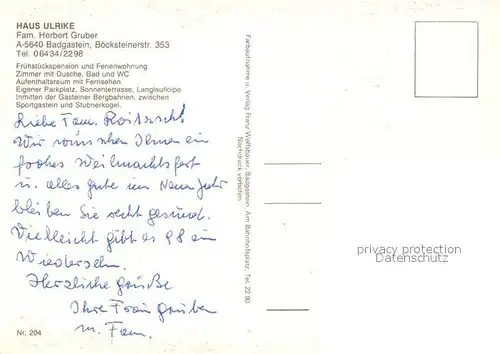 HAUS ULRIKE
Fam. Herbert Gruber
A-5640 Badgastein, Böcksteinerstr. 353
Tel. 0 64 34 / 22 98
Frühstückspension und Ferienwohnung
Zimmer mit Dusche, Bad und WC
Aufenthaltsraum mit Fernsehen
Eigener Parkplatz, Sonnenterrasse, Langlaufloipe
Inmitten der Gasteiner Bergbahnen, zwischen
Sportgastein und Stubnerkogel.
Liebe Fam.
Wir wünschen Ihnen ein
frohes Weihnachtsfest
u. alles gute im Neuen Jahr
bleiben Sie recht gesund.
Vielleicht gibt es 98 ein
Wiedersehn.
Herzliche Grüße
Ihre Frau Gruber
m. Fam.
Nr. 204
Farbaufnahme u. Verlag Franz Wolfsbauer, Badgastein, Am Bahnhofsplatz, Tel. 22 80
Nachdruck verboten
privacy protection
Datenschutz